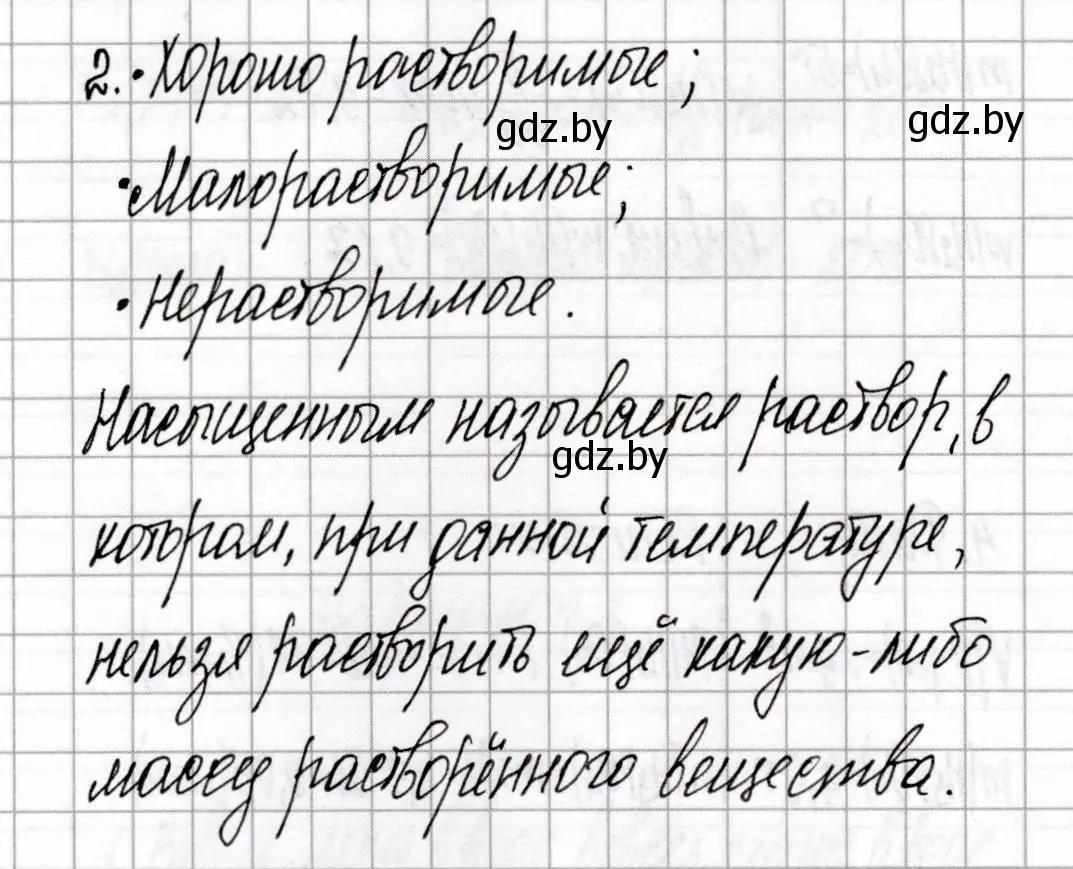 2. • Хорошо растворимые;
gdz.by
gdz.by
• Малорастворимые;
• Нерастворимые.
Насыщенным называется раствор, в
gdz.by
котором, при данной температуре,
нельзя растворить ещё какую-либо
массу растворённого вещества.